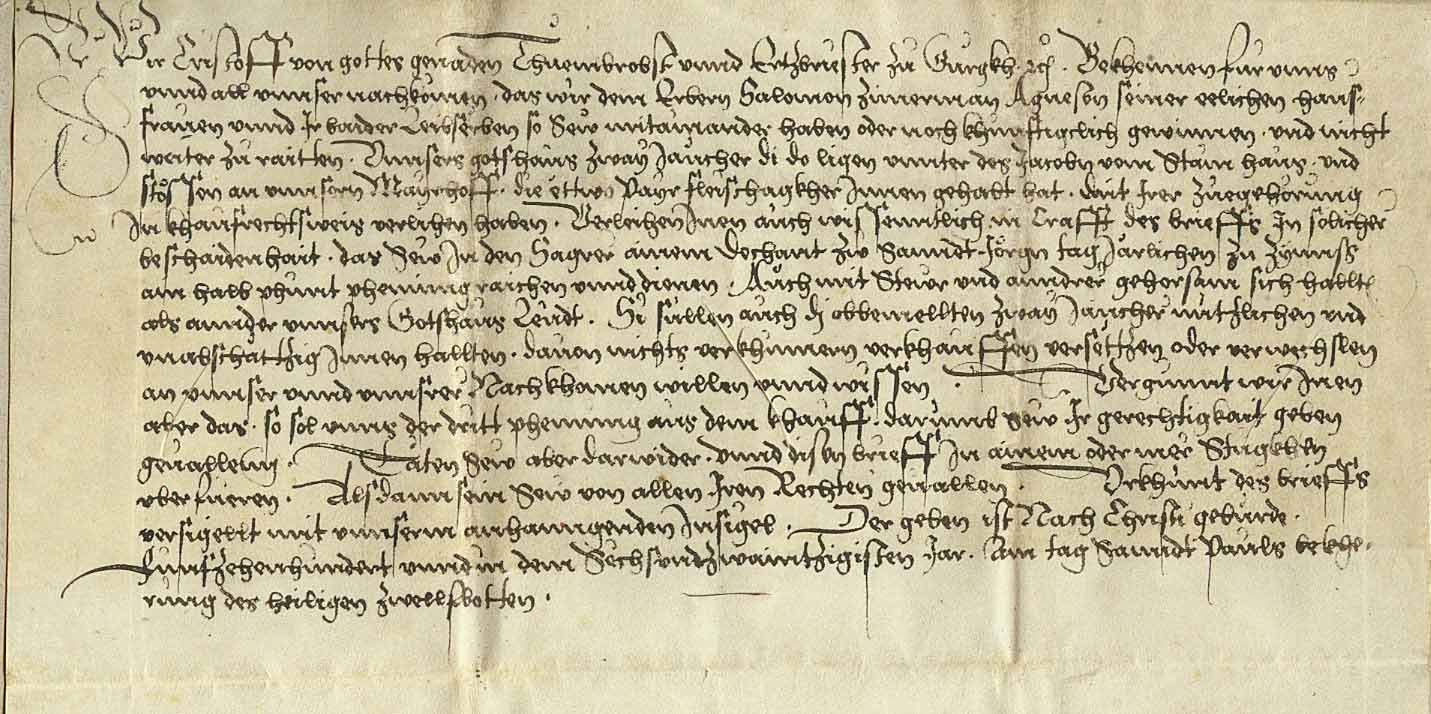 Wir Cristoff von gottes genaden Thuembrobst unnd Ertzbriester zu Gurgkh etc. Bekhennen fur unns
unnd all unnser nachkomen. das wir dem Erbern Salomon Zimerman Agnesen seiner eelichen haus-
frauen unnd Ir baider Leibserben so Sew mitainander haben oder noch khunfftigclich gewinnen. und nicht
weiter zu raitten. Unnsers gotshaus zway Jaucher di do ligen unnter des Jacobn vom Stain haus. und
stossen an unnsern Mayrhoff. die ettwo Payr fleischagkher Innen gehabt hat. mit Irer zuegehorung
In khaufrechtsweis verlihen haben. Verleihen Inen auch wissenntlich in Crafft des brieffs In solicher
beschaidenhait. das Sew In den Sagrer ainem Dechant zw Sanndt Jorgn tag Jarlichen zu zynnss
ain halb phunt phening raichen unnd dienen. Auch mit Stewr und anndrer gehorsam sich hallten
als annder unnsers Gotshaus Leudt. Si sullen auch di obbemellten zway Jaucher nutzlichen und
unabschattzig Innen hallten. davon nichts verkhumern verkhauffen versettzen oder verwechslen
an unnser unnd unnsrer Nachkhomen willen unnd wissen. Vergunnt wir Inen
aber das. so sol unns der dritt phening aus dem khauff. darumb Sew Ir gerechtigkait geben
gevallen. Taten Sew aber darwider. unnd disen brieff In ainem oder mer Stugkhen
uberfueren. Alsdann sein Sew von allen Iren Rechten gevallen. Urkhunt des brieffs
versigellt mit unnserm anhanngenden Insigel. Der geben ist Nach Christi geburde.
Funfzehenhundert unnd in dem Sechsundzwaintzigisten Jar. Am tag Sanndt Pauls bekhe-
rung des heiligen zwellfbotten.